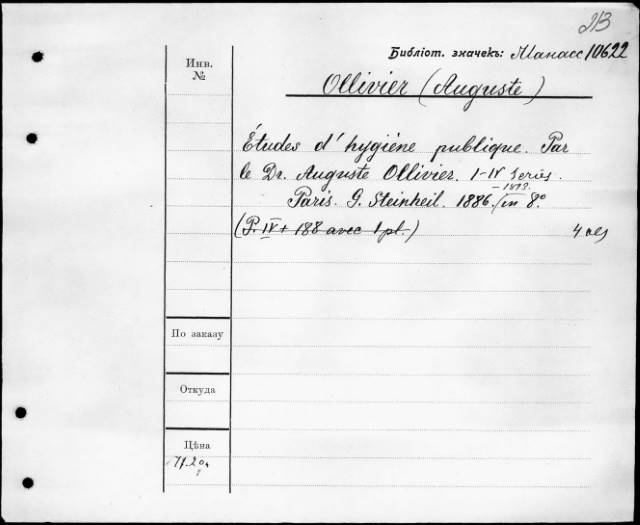 213
Библіот. значекъ: Манасс 10622
Инв.
№
Ollivier (Auguste)
Études d'hygiène publique. Par
le Dr. Auguste Ollivier. I-IV Series.
Paris. G. Steinheil. 1886. -1893. / in 8°
(P. IV + 188 avec 1 pl.)
По заказу
Откуда
Цѣна